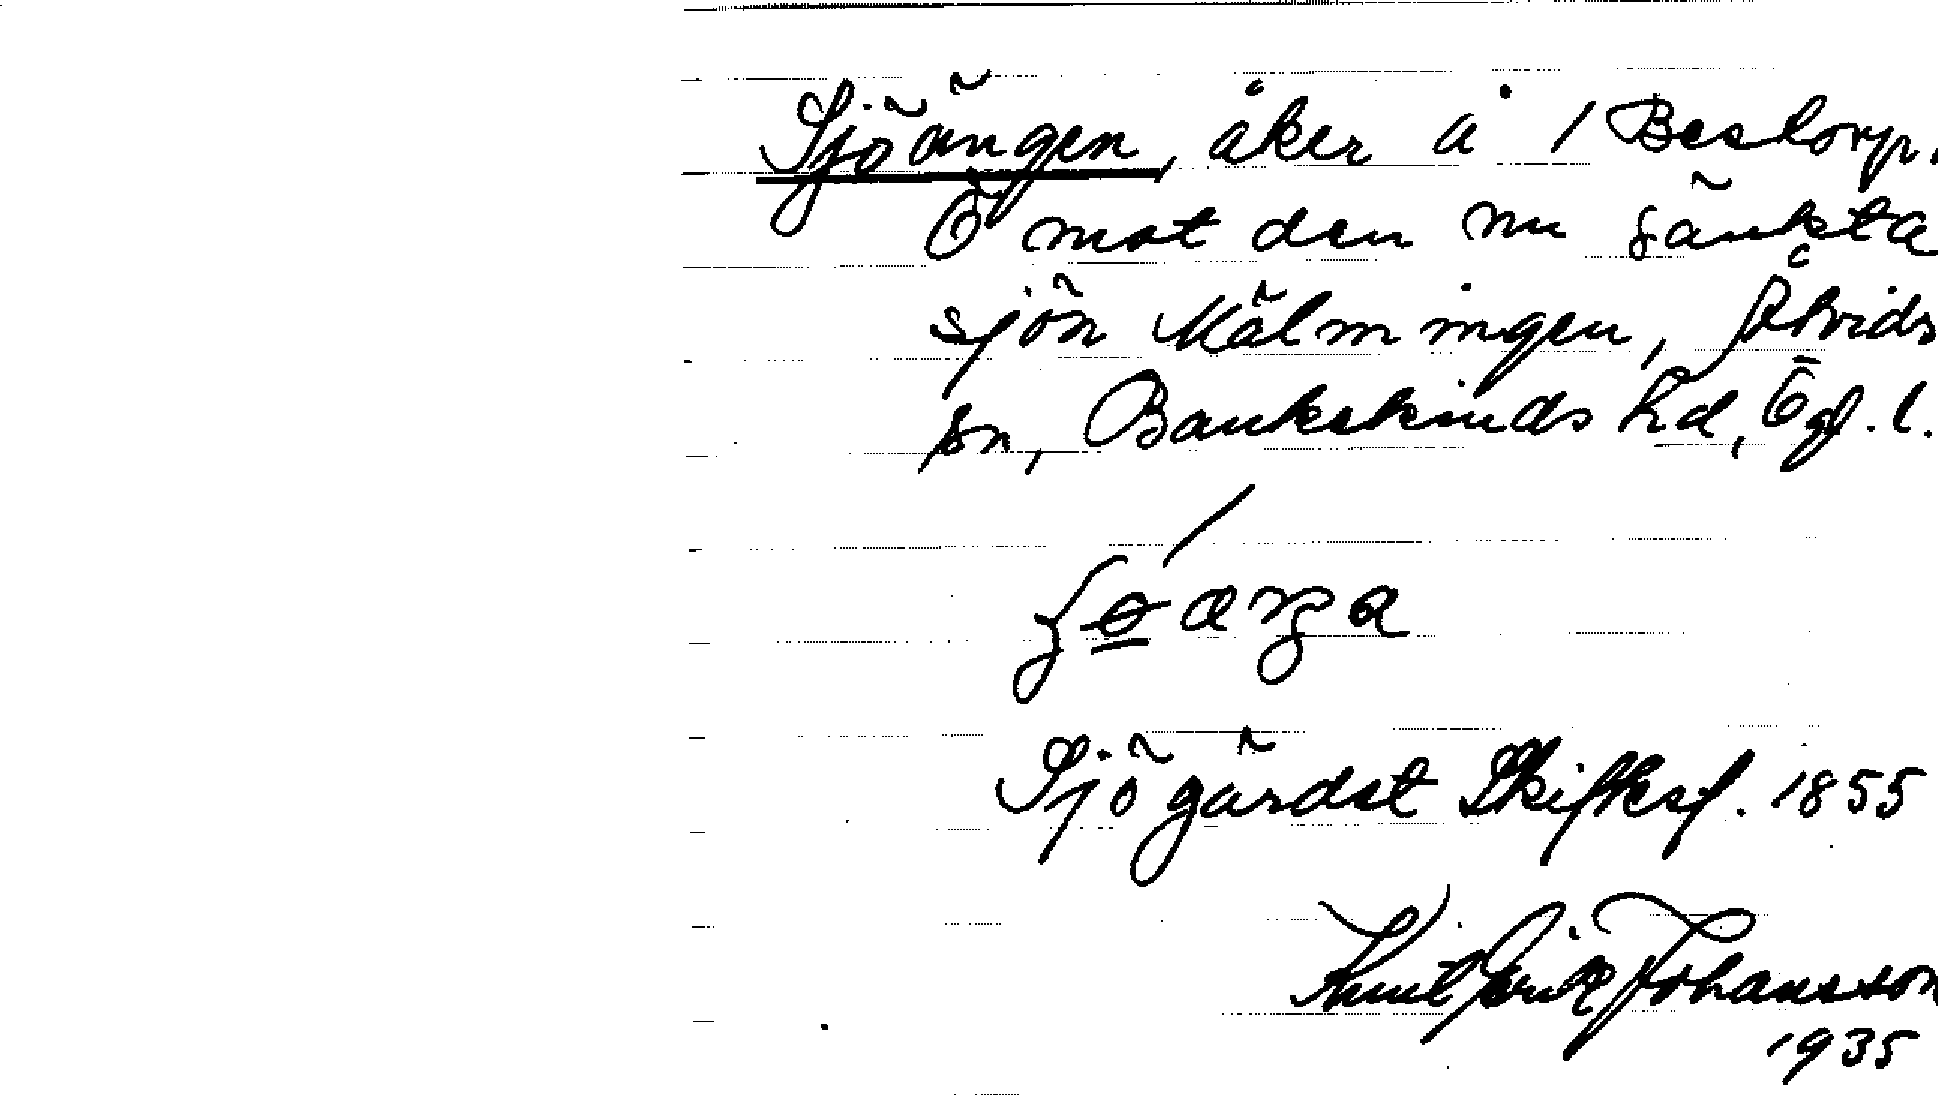 Sjöängen, åker å 1 Bestorp.
Ö mot den nu sänkta
sjön Mälmingen, Åtvids
sn, Bankekinds hd, Ög. l.
Sjögärdet Skiftesf. 1855
Knut Erik Johansson
1935